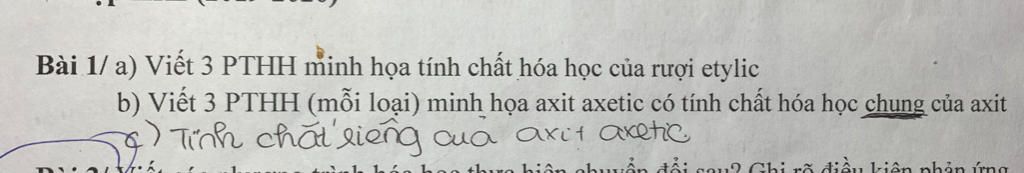 Bài 1/ a) Viết 3 PTHH minh họa tính chất hóa học của rượi etylic
b) Viết 3 PTHH (mỗi loại) minh họa axit axetic có tính chất hóa học chung của axit
c) Tính chất riêng của axit axetic
Viết các phương trình hóa học thực hiện chuyển đổi sau? Ghi rõ điều kiện phản ứng